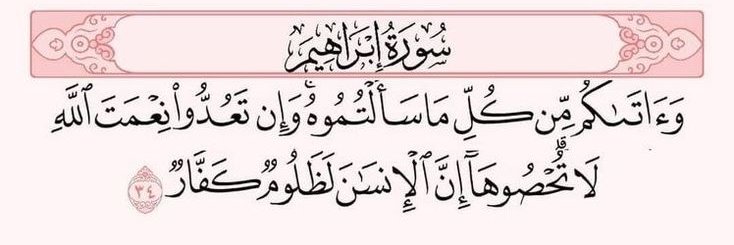 سُورَةُ إِبْرَاهِيمَ
وَءَاتَىٰكُم مِّن كُلِّ مَا سَأَلْتُمُوهُ ۚ وَإِن تَعُدُّوا۟ نِعْمَتَ ٱللَّهِ
لَا تُحْصُوهَآ ۗ إِنَّ ٱلْإِنسَـٰنَ لَظَلُومٌ كَفَّارٌ ٣٤